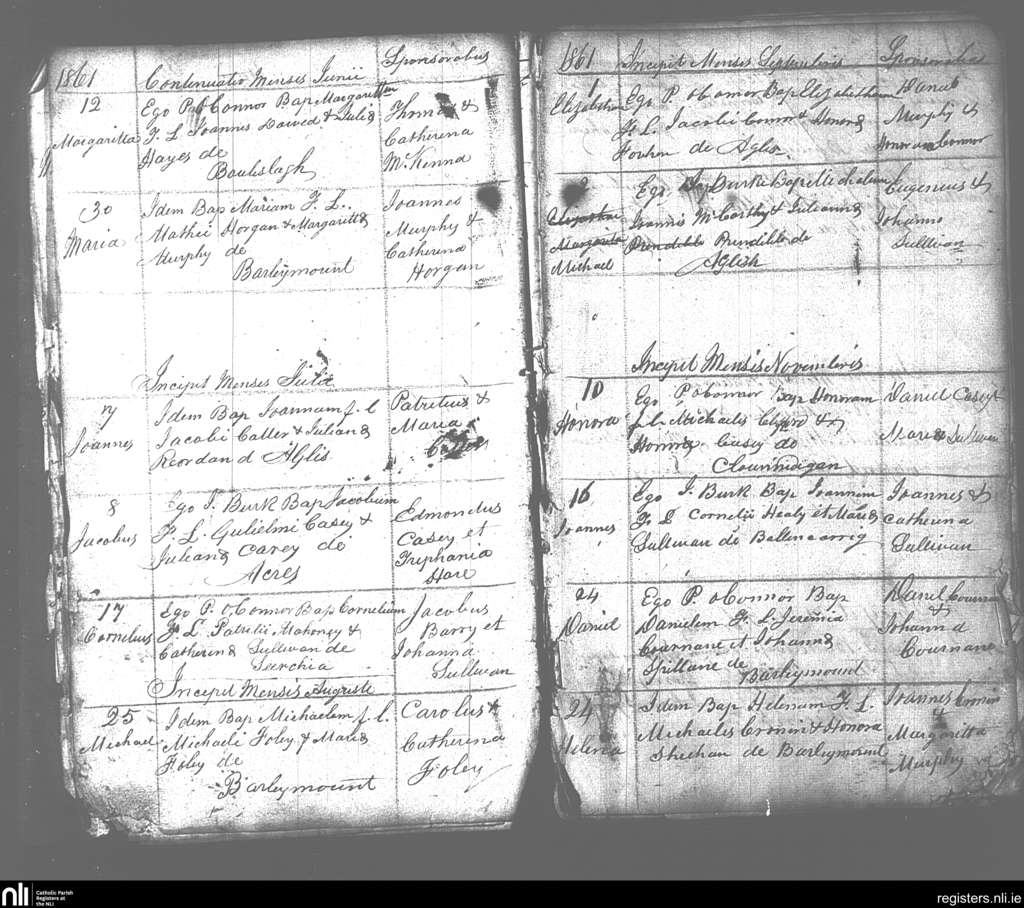 1861 Continuatio Menses Junii Sponsorabus
12 Ego P O Connor Bap Margarittam Thomas &
Margaritta F L Joannis Dowed & Julia Catherina
Hayes de McKenna
Bouleslagh
30 Idem Bap Mariam F. L. Joannes
Maria Mathei Horgan & Margaritta Murphy &
Murphy de Catherina
Barleymount Horgan
Incipit Menses Julii
7 Idem Bap Joannum f. l Patritius &
Joannes Jacobi Calter & Juliana Maria
Reordan d Aglis
8 Ego J. Burk Bap Jacobum Edmondus
Jacobus F. L. Gulielmi Casey & Casey et
Juliana Carey de Trephania
Acres Hare
17 Ego P. O Connor Bap Cornelium Jacobus
Cornelius F L Patritii Mahoney & Barry et
Catherina Sullivan de Johanna
Sullivan
Incipit Mensis Auguste
25 Idem Bap Michaelem f. l. Carolus &
Michael Michaeli Foley & Maria Catherina
Foley de Foley
Barleymount
1861 Incipit Menses Septembris Sponsorabus
1 Ego P. O Connor Bap Elizabetham Daniel
Elizabetha F. L. Jacobi Connor & Honora Murphy &
de Aglis Honora Connor
2 Ego J Burke Bap Michaelum Eugenius &
Joannis McCarthy & Juliana Johanna
Margarita Prendible Prendible de Sullivan
Michael Aglish
Incipit Mensis Novembris
10 Ego P O Connor Bap Honoram Daniel Casey &
Honora f. l. Michaelis &
Honora Casey de Maria Sullivan
16 Ego J. Burk Bap Joannim Joannes &
Joannes F. L Cornelii Healy et Maria Catherina
Sullivan de Ballencarrig Sullivan
24 Ego P. O Connor Bap Daniel Cournane
Daniel Danielem F. L. Jeremia &
Cournane et Johanna Johanna
Spillane de Cournane
Barleymount
24 Idem Bap Helenam F. L. Joannes Cronin
Helena Michaeles Cronin & Honora &
Sheehan de Barleymount Margaritta
Murphy
nli Catholic Parish
Registers at
the NLI
registers.nli.ie